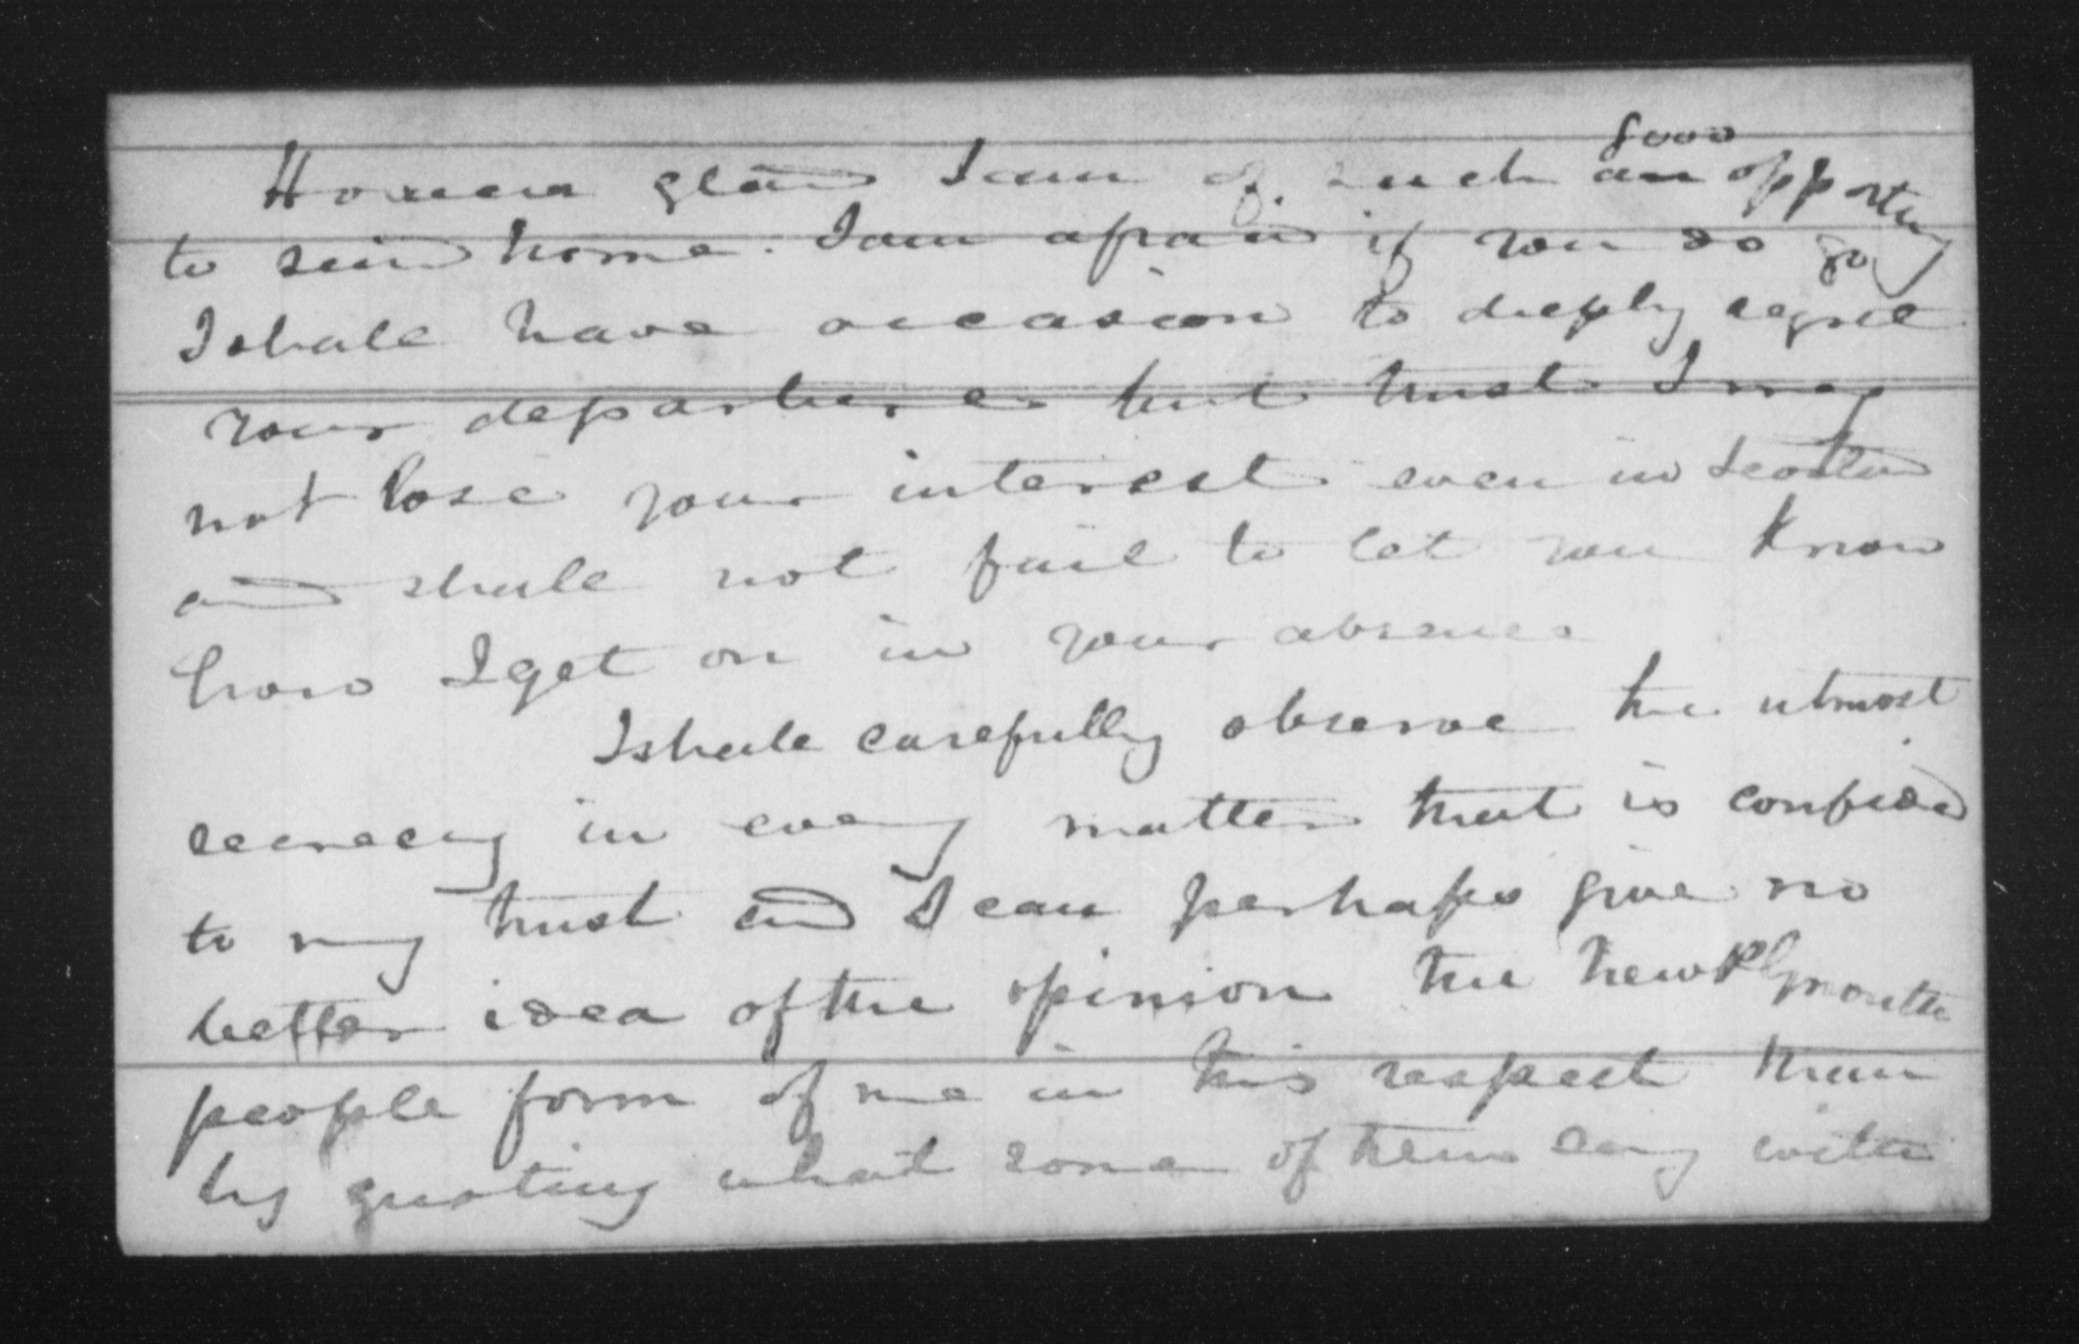 However glad I am of such an good opportuny
to send home. I am afraid if you do go
I shall have occasion to deeply regret
your departure but trust I may
not lose your interest even in Scotland
and shall not fail to let you know
how I get on in your absence
I shall carefully observe the utmost
secrecy in every matter that is confided
to my trust and I can perhaps give no
better idea of the opinion the New Plymouth
people form of me in this respect than
by quoting what some of them say with